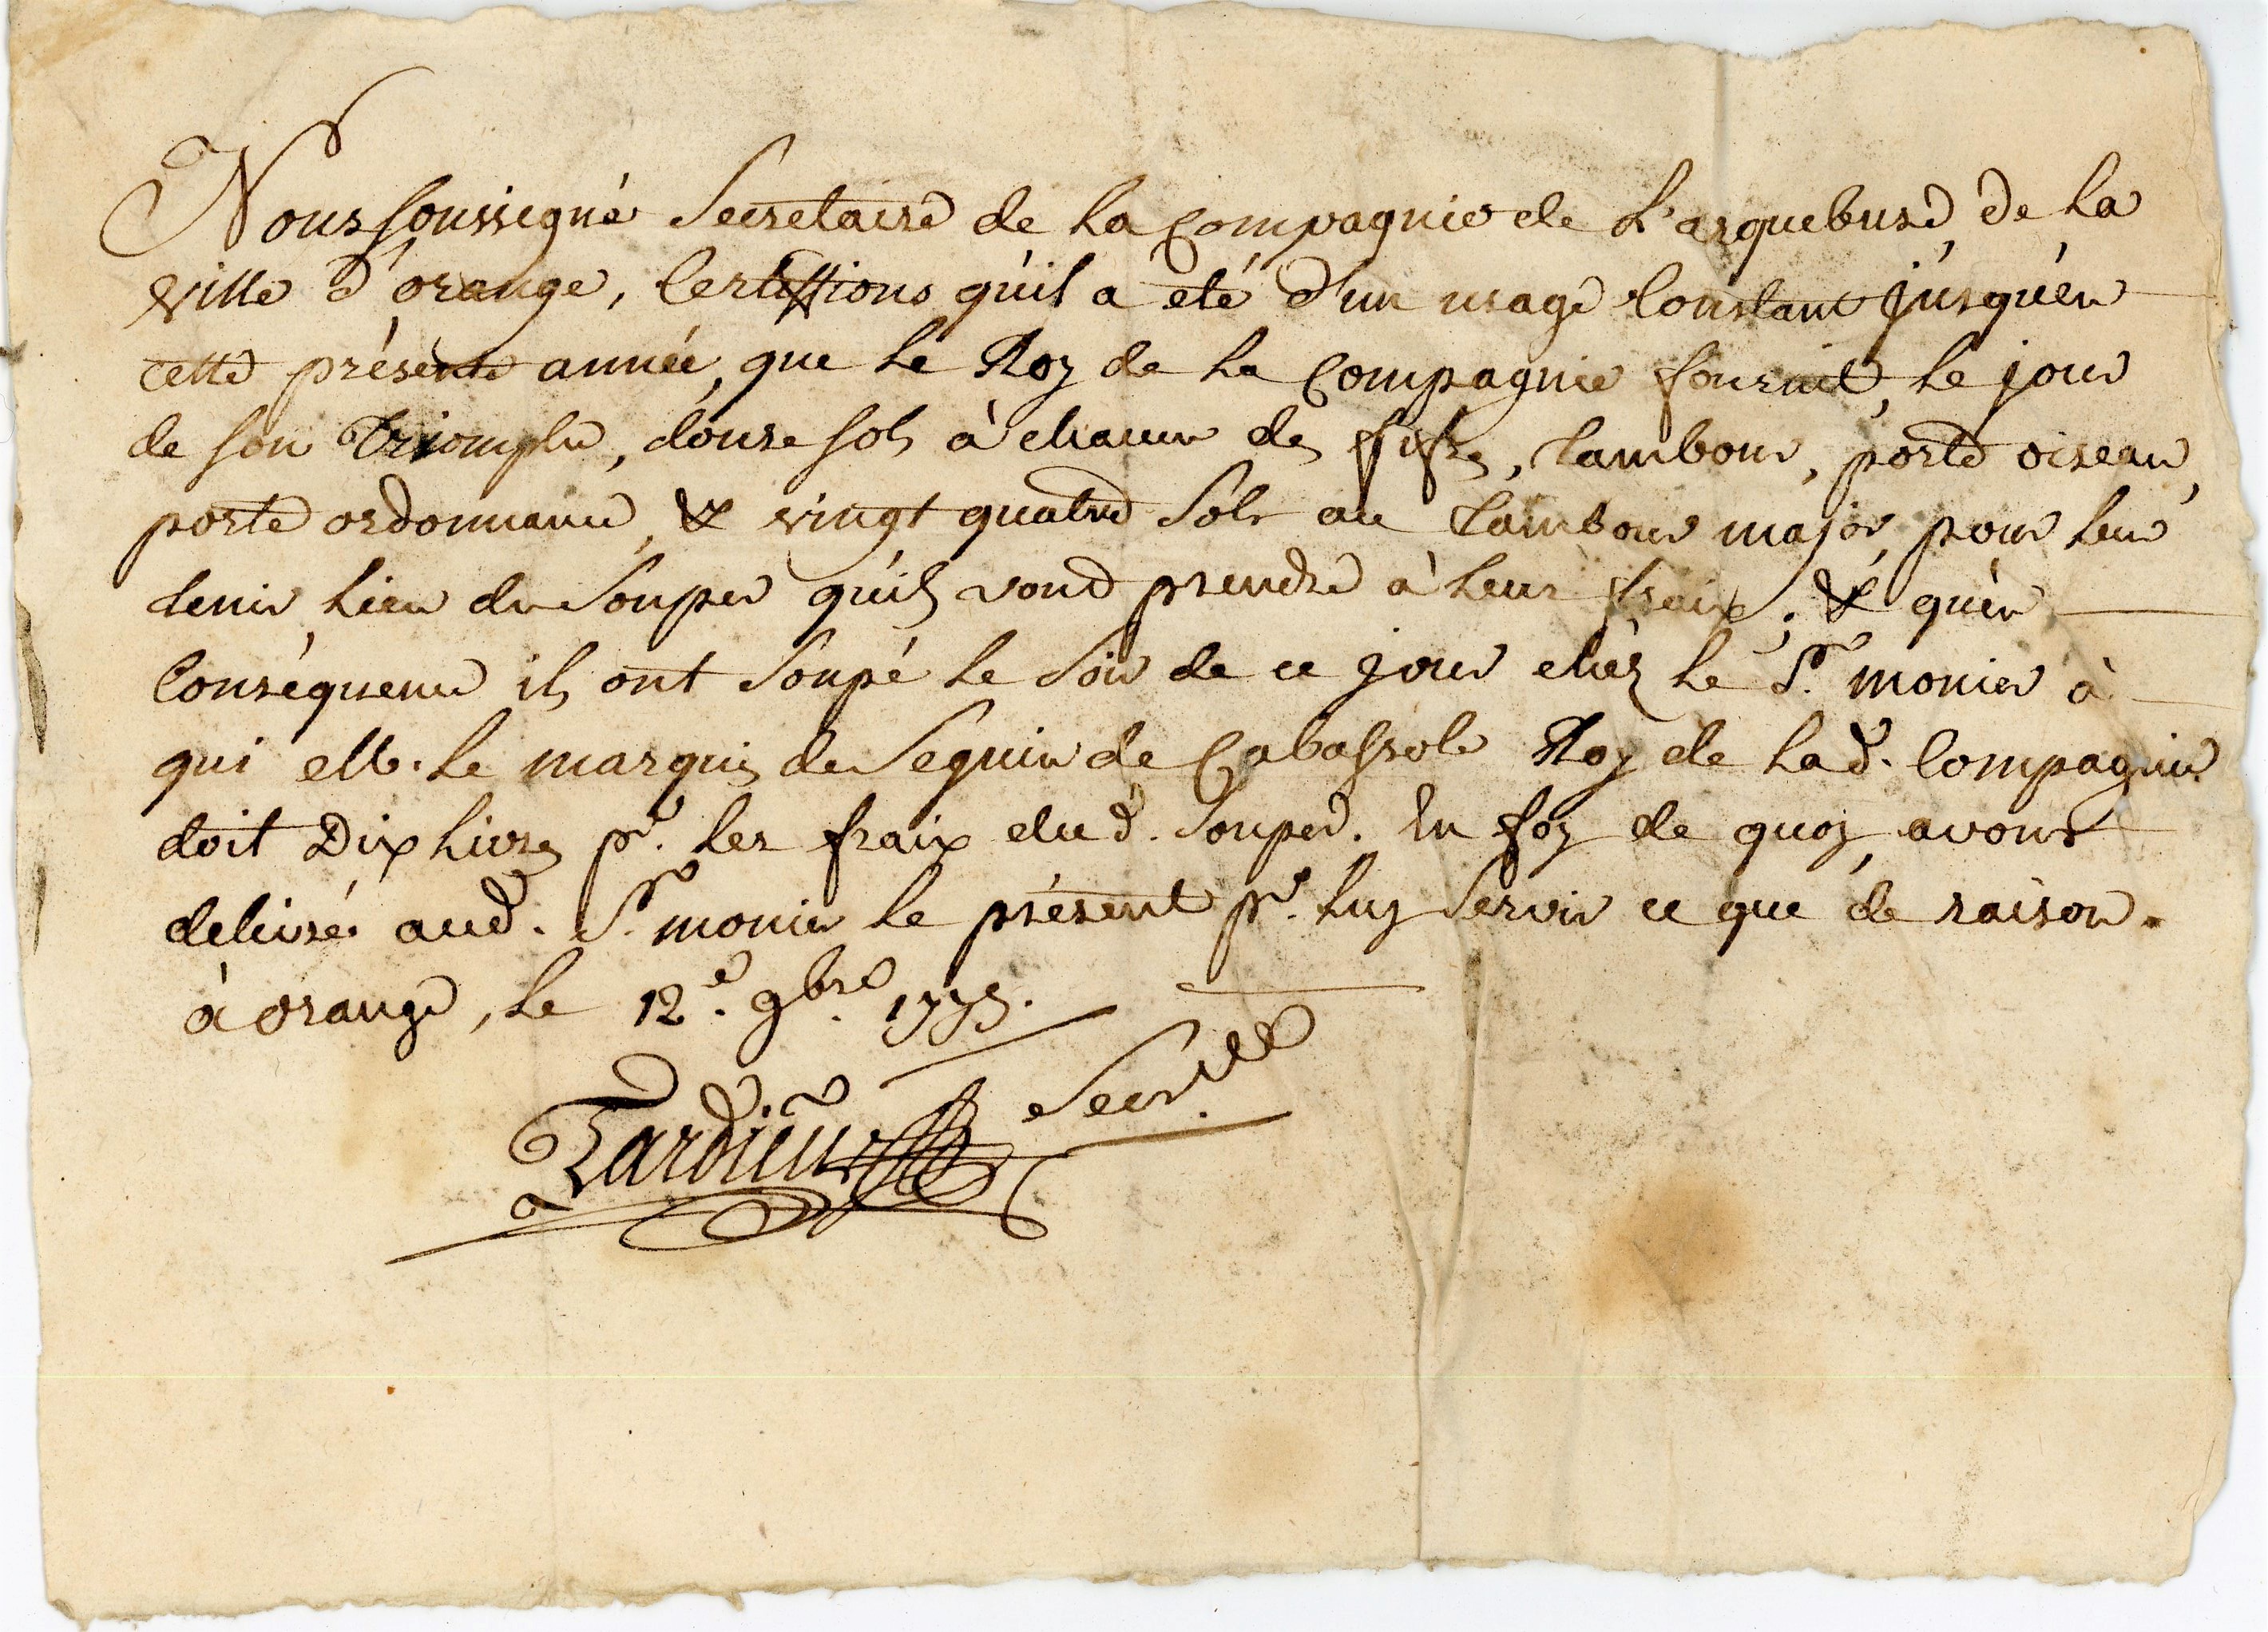 Nous soussigné Secretaire de La Compagnie de L'arquebuse, de La
ville d'orange, Certiffions qu'il a eté d'un usage Constant jusqu'en
cette présente année, que Le Roy de La Compagnie fournit, Le jour
de son Triomphe, douse sols à chacun des fifres, tambour, porte oiseau,
porte ordonnance, & vingt quatre Sols au tambour major, pour leur
tenir Lieu du Souper qu'ils vont prendre à Leur fraix; & qu'en
Conséquence ils ont Soupé Le Soir de ce jour chéz Le Sr. monier à
qui Le marquis de Seguin de Cabassole Roy de Lad. Compagnie
doit Dix Livres pr. Les fraix dud. Souper. En foy de quoy avons
delivré aud. Sr. monier Le présent pr. Luy Servir ce que de raison.
à Orange, Le 12e. 9bre. 1775.
Tardieu Secre.